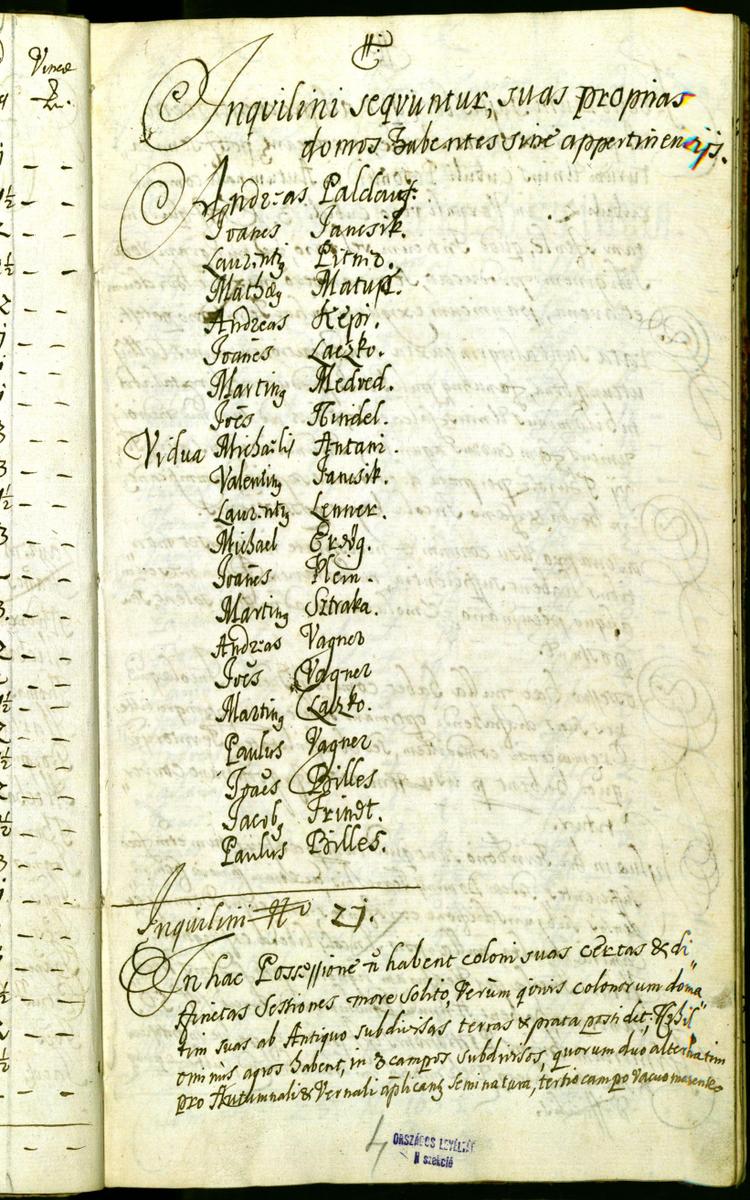 Vineæ
Inquilini sequuntur, suas proprias
domos habentes sine appertinentijs.
Andreas Paldauf.
Joanes Jancsik.
Laurenty Pitnio.
Mathæ9 Matuss.
Andreas Kepi.
Joanēs Laczko.
Martin9 Medved.
Joēs Hindel.
Vidua Michaelis Antani.
Valentin9 Jancsik.
Laurenty Lenner.
Michael Erdög.
Joanēs Klein.
Martin9 Sztraka.
Andreas Vagner
Joēs Vagner
Martin9 Laczko.
Paulus Vagner
Joaēs Billes
Jacob9 Frindt.
Paulus Billes.
Inquilini No 21.
In hac Possessione n̄ habent coloni suas certas & di„
stinctas Sessiones more solito, Verùm quivis colonorum doma„
tim suas ab Antiquo subdivisas terras & prata possidet; Nihil„
ominus agros habent, in 3 campos subdivisos, quorum duo alternatim
pro Autumnali & Vernali aplicant9 seminatura, tertio campo vacuo manente
4
ORSZÁGOS LEVÉLTÁR
N szekció